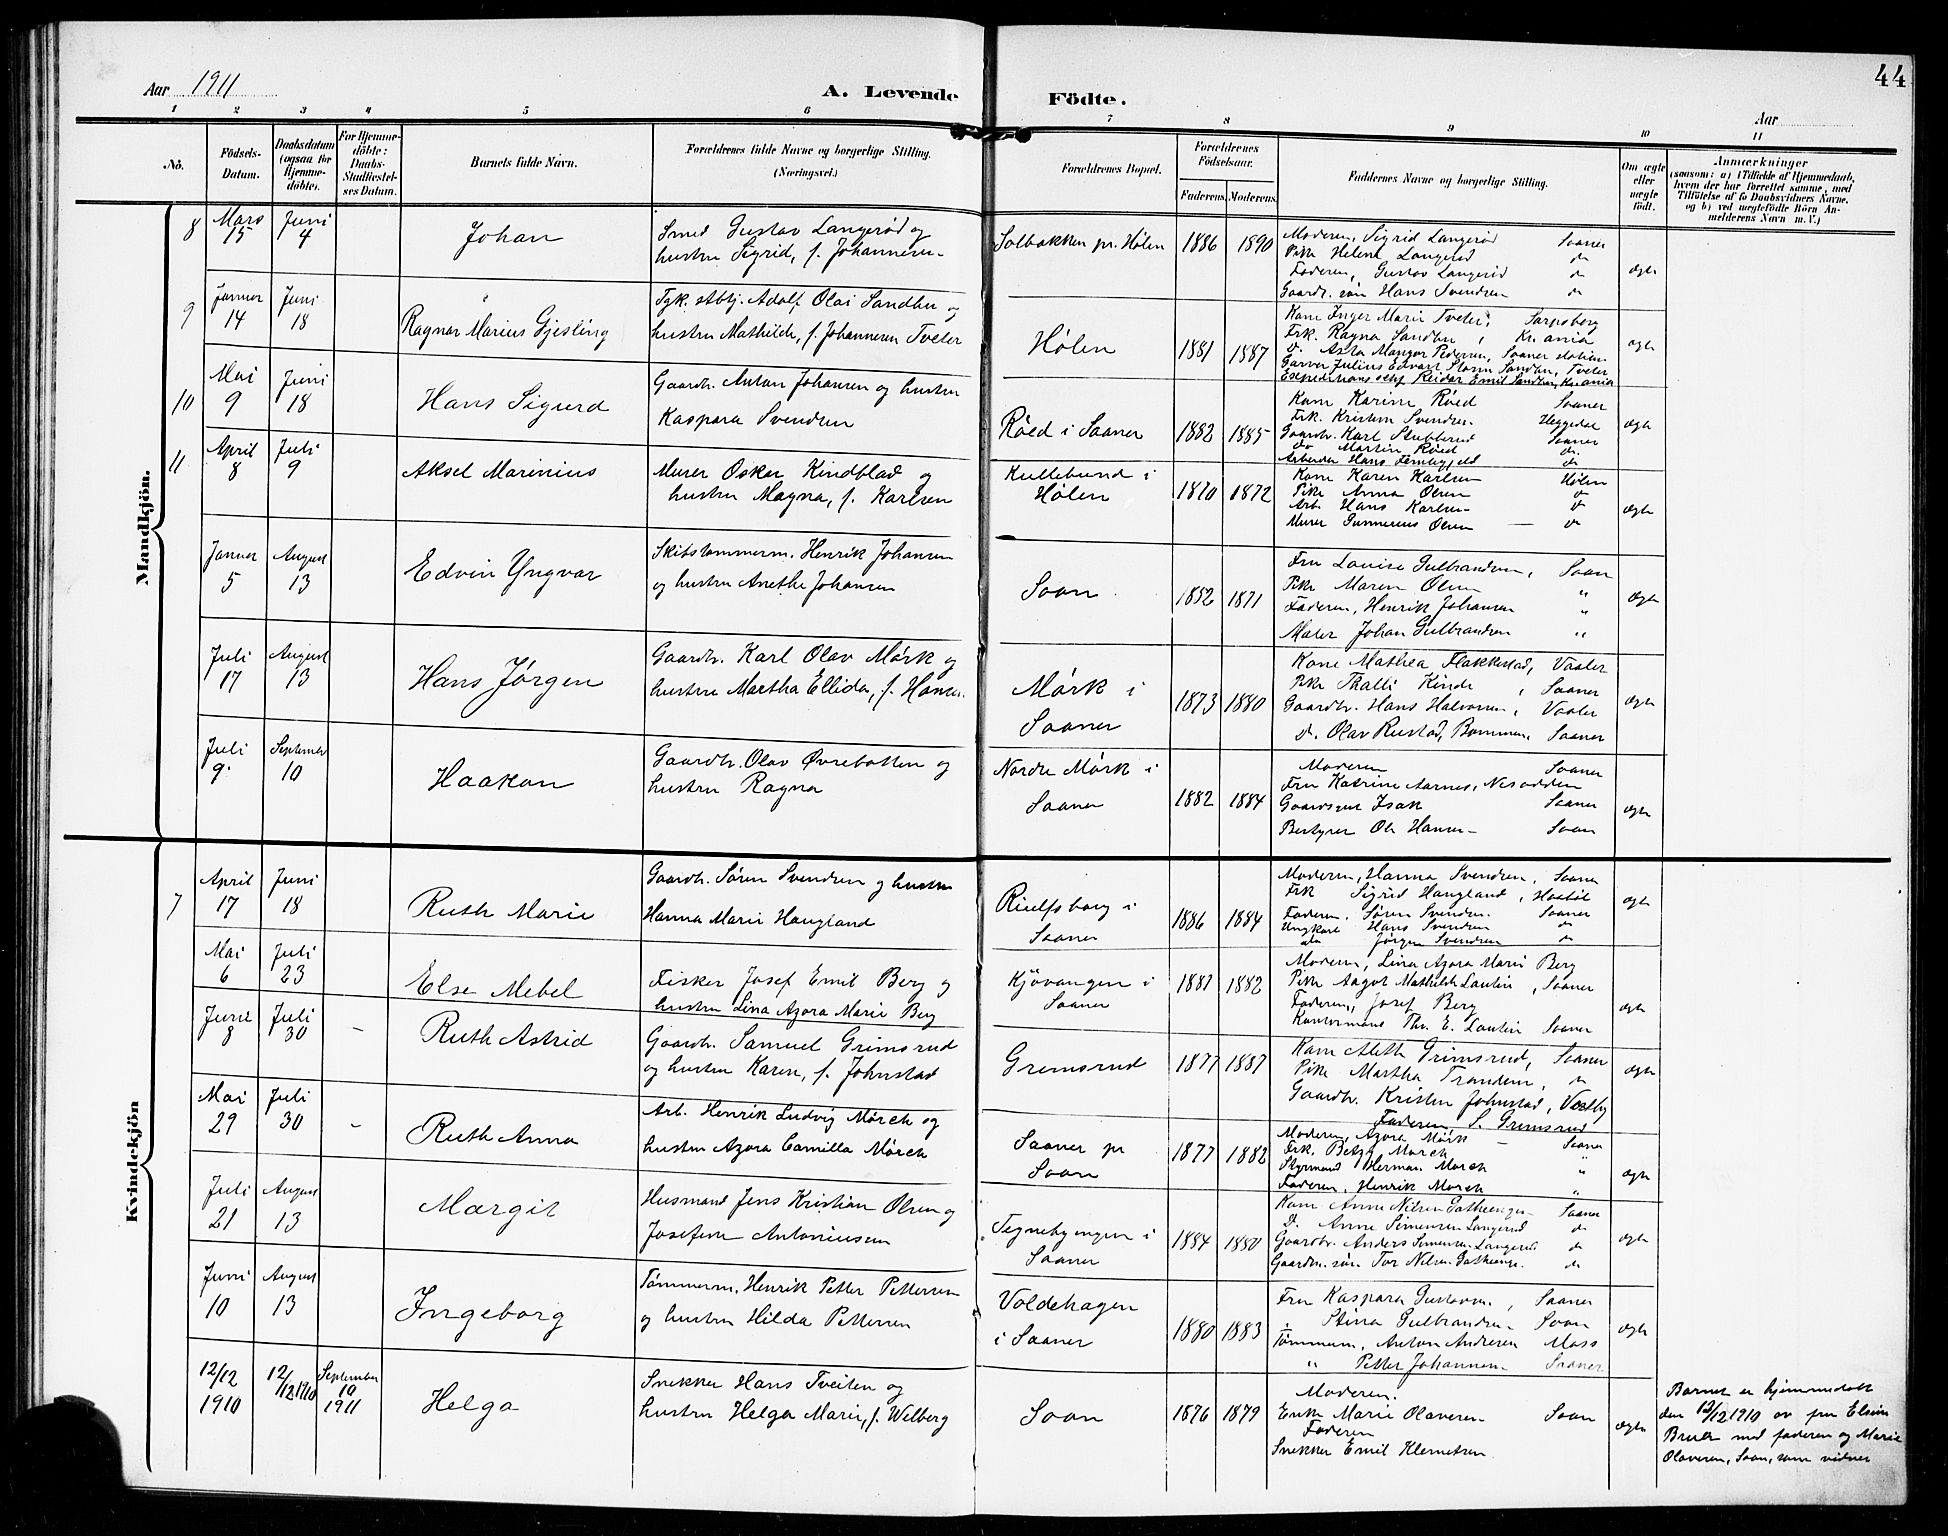 44
Aar 1911
A. Levende Födte.
Aar
1 2 3 4 5 6 7 8 9 10 11
No.
Födsels-Datum.
Daabsdatum (ogsaa for Hjemme-döbte).
For Hjemme-döbte: Daabs-Stadfæstel-ses Datum.
Barnets fulde Navn.
Forældrenes fulde Navne og borgerlige Stilling. (Næringsvei.)
Forældrenes Bopæl.
Forældrenes Födselsaar.
Faderens. Moderens.
Faddernes Navne og borgerlige Stilling.
Om ægte eller uægte födt.
Anmærkninger
(saasom: a) i Tilfælde af Hjemmedaab, hvem der har forrettet samme, med Tilföielse af to Daabsvidners Navne, og b) ved uægtefödte Börn An-melderens Navn m. V.)
Mandkjön.
8
Mars 15
Juni 4
Johan
Smed Gustav Langerød og
hustru Sigrid, f. Johannesen
Solbakken pr. Hølen
1886 1890
Moderen, Sigrid Langerød Saaner
Pike Helene Langerød do
Faderen, Gustav Langerød do
Gaardb. søn Hans Svendsen do
ægte
9
Januar 14
Juni 18
Ragnar Marius Gjesling
Adolf Olai Sandbu og
hustru Mathilde, f. Johannesen Tveter
Hølen
1881 1887
Kone Inger Marie Tveter, Sarpsborg
Frk. Ragna Sandbu, Kr.ania
D. Asta Mangor Pedersen, Saaner station
Garver Julius Edvart Storm Sandbu, Tveter
Reidar Emil Sandbu, Kr.ania
ægte
10
Mai 9
Juni 18
Hans Sigurd
Gaardb. Anton Johansen og hustru
Kaspara Svendsen
Røed i Saaner
1882 1885
Kone Karine Røed Saaner
Frk. Kristine Svendsen Heggedal
Gaardbr. Karl Stubberud Saaner
do Martin Røed do
Arbeider Hans do
ægte
11
April 8
Juli 9
Aksel Marinius
Murer Oskar Kindblad og
hustru Magna, f. Karlsen
Kullebund i
Hølen
1870 1872
Kone Karen Karlsen Hølen
Pike Anna Olsen do
Arb. Hans Karlsen do
Murer Gunnerius Olsen — do
ægte
Januar 5
August 13
Edvin Yngvar
Skibstømmerm. Henrik Johansen
og hustru Anethe Johansen
Soon
1852 1871
Fru Lovise Gulbrandsen, Soon
Pike Maren Olsen "
Faderen, Henrik Johansen "
Maler Johan Gulbrandsen "
ægte
Juli 17
August 13
Hans Jørgen
Gaardb. Karl Olav Mørk og
hustru Martha Ellida, f. Hansen
Mørk i
Saaner
1873 1880
Kone Mathea Flakkestad, Vaaler
Pike Thalli Kinde, Saaner
Gaardb. Hans Halvorsen, Vaaler
D. Olav Rustad, Bommen, Saaner
ægte
Juli 9
September 10
Haakon
Gaardb. Olav Øvrebotten og
hustru Ragna
Nordre Mørk i
Saaner
1882 1884
Moderen Saaner
Fru Katrine Aarnes, Nesodden
Isak Saaner
Bestyrer Ole Hansen Soon
ægte
Kvindekjön
7
April 17
Juni 18
Ruth Marie
Gaardb. Søren Svendsen og hustru
Hanna Marie Haugland
Riulfsborg i
Saaner
1886 1884
Moderen, Hanna Svendsen, Saaner
Frk Sigrid Haugland, Hobøl
Faderen, Søren Svendsen Saaner
Ungkarl Hans Svendsen do
do Jørgen Svendsen do
ægte
Mai 6
Juli 23
Else Mebel
Fisker Josef Emil Berg og
hustru Lina Azora Marie Berg
Kjøvangen i
Saaner
1881 1882
Moderen, Lina Azora Marie Berg
Pike Aagot Mathilde Lautin, Saaner
Faderen, Josef Berg
Kontormand Thv. E. Lautin Saaner
ægte
Juni 8
Juli 30
-
Ruth Astrid
Gaardb. Samuel Grimsrud
og hustru Karen, f. Johnstad
Grimsrud
1877 1887
Kone Aleth Grimsrud, Saaner
Pike Martha Trandem, do
Gaardb. Kristen Johnstad, Vestby
Faderen S. Grimsrud
ægte
Mai 29
Juli 30
-
Ruth Anna
Arb. Henrik Ludvig Mørch og
hustru Azora Camilla Mørch
Saaner pr
Soon
1877 1882
Moderen, Azora Mørk — Saaner
Frk. Betzy Mørch "
Styrmand Herman Mørch "
Faderen, Henrik Mørch "
ægte
Juli 21
August 13
Margit
Husmand Jens Kristian Olsen og
Josefine Antoniusen
Tegnebyengen i
Saaner
1884 1880
Kone Anne Nilsen Saaner
D. Anne Simensen Langerud do
Gaardbr. Anders Simensen Langerud do
Gaardm. søn Tor Nilsen do
ægte
Juni 10
August 13
Ingeborg
Tømmerm. Henrik Petter Pettersen
og hustru Hilda Pettersen
Voldehagen
i Saaner
1880 1883
Fru Kaspara Gustavsen, Saaner
" Stina Gulbrandsen Soon
Tømmerm. Anton Andresen Moss
" Petter Johannesen Saaner
ægte
12/12 1910
12/12 1910
September 10 1911
Helga
Snekker Hans Tveiten og
hustru Helga Marie, f. Welberg
Soon
1876 1879
Moderen.
Enke Marie Olavesen Soon
Faderen
Snekker Emil Klemetsen
ægte
Barnet er hjemmedøbt
den 12/12 1910 av fru Elsine
Bruer med faderen og Marie
Olavesen, Soon, som vidner